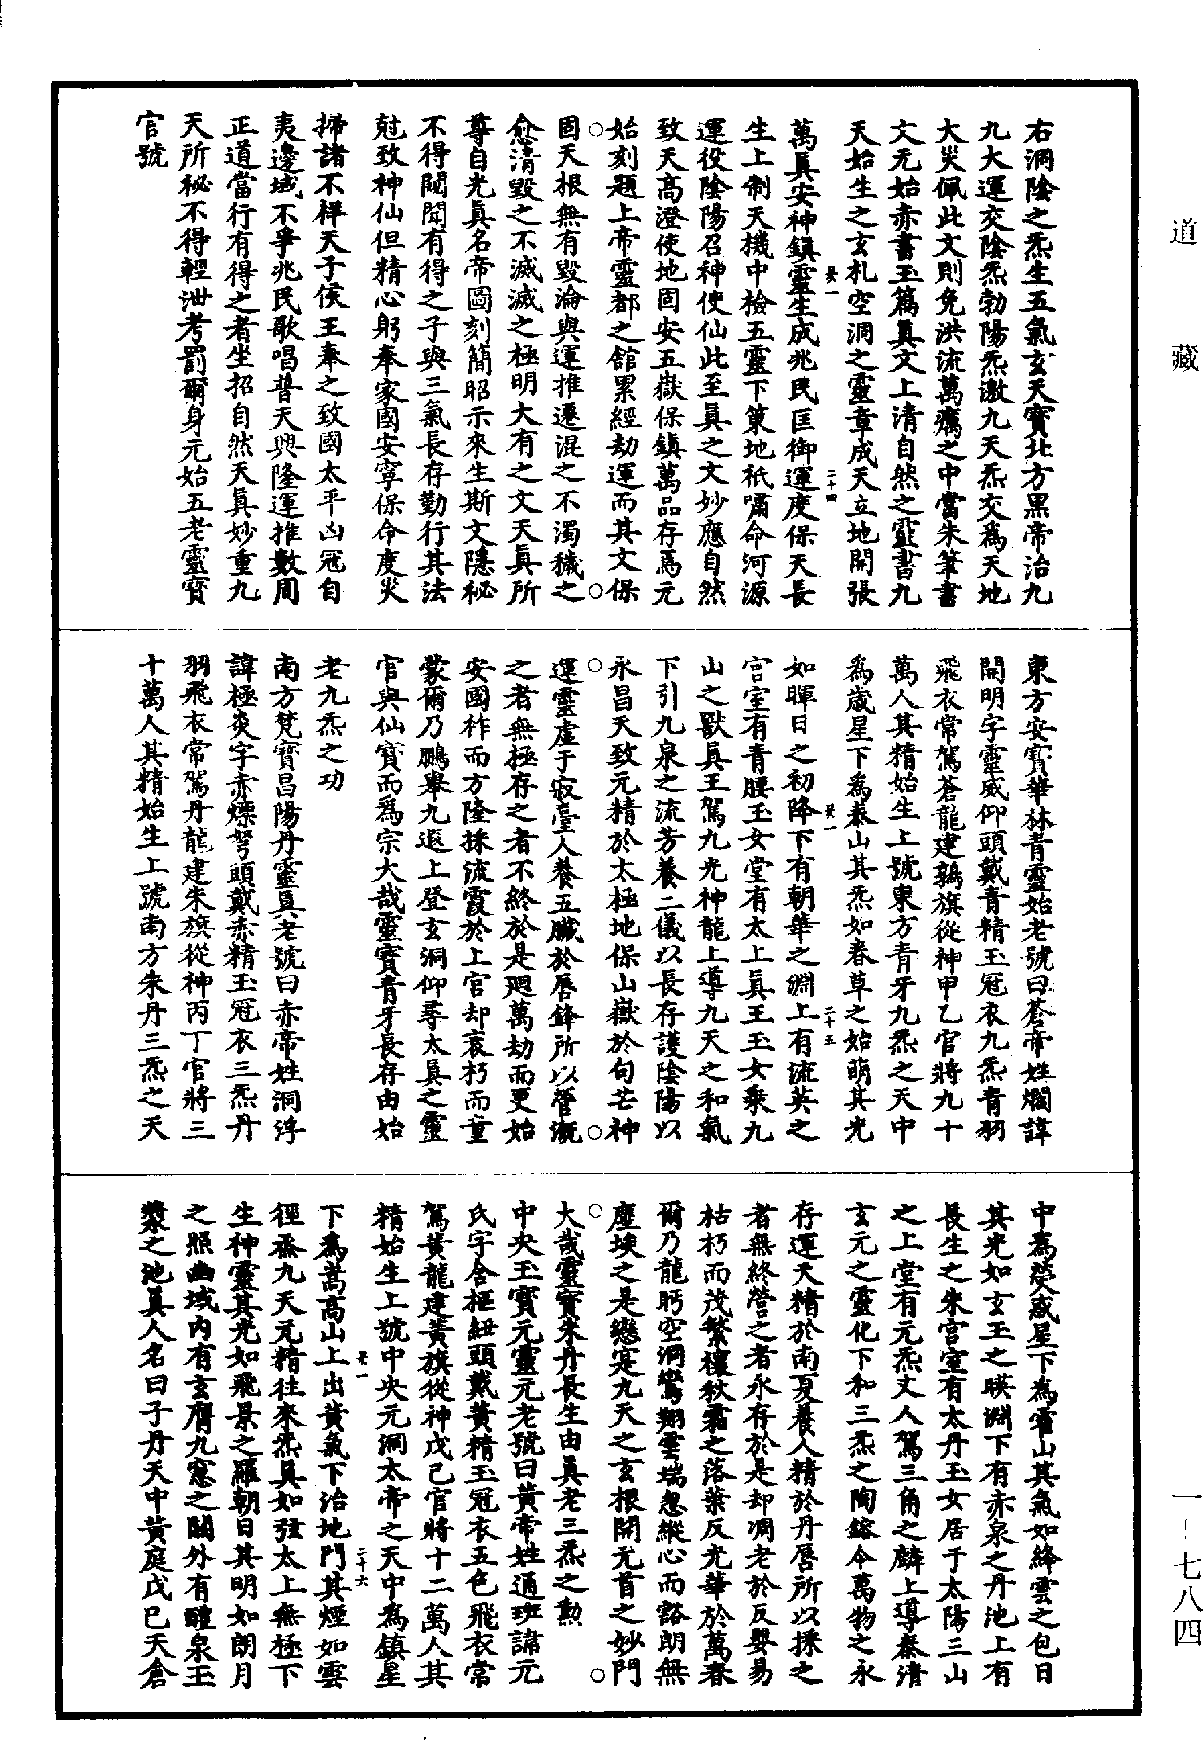 道藏
右洞陰之炁生五氣玄天寶北方黑帝治九
九大運交陰炁勃陽炁激九天炁交為天地
大災佩此文則免洪流萬癘之中當朱筆書
文元始赤書玉篇真文上清自然之靈書九
天始生之玄札空洞之靈章成天立地開張
萬真安神鎮靈生成兆民匡御運度保天長
生上制天機中檢五靈下策地祇嘯命河源
運役陰陽召神使仙此至真之文妙應自然
致天高澄使地固安五嶽保鎮萬品存焉元
始刻題上帝靈都之館累經劫運而其文保
固天根無有毀淪與運推遷混之不濁穢之
愈清毀之不滅滅之極明大有之文天真所
尊自光真名帝圖刻簡昭示來生斯文隱祕
不得聞聞有得之子與三氣長存勤行其法
尅致神仙但精心躬奉家國安寧保命度災
掃諸不祥天子侯王奉之致國太平凶冠自
夷邊域不爭兆民歌唱普天興隆運推數周
正道當行有得之者坐招自然天真妙重九
天所秘不得輕泄考罰爾身元始五老靈寶
官號
東方安寶華林青靈始老號曰蒼帝姓爛諱
開明字靈威仰頭戴青精玉冠衣九炁青羽
飛衣常駕蒼龍建鶉旗從神甲乙官將九十
萬人其精始生上號東方青牙九炁之天中
為歲星下為泰山其炁如春草之始萌其光
如暉日之初降下有朝華之淵上有流英之
宮室有青腰玉女堂有太上真王玉女乘九
山之獸真王駕九光神龍上導九天之和氣
下引九泉之流芳養二儀以長存護陰陽以
永昌天致元精於太極地保山嶽於句芒神
運靈虛于寂臺人養五臟於唇鋒所以營溉
之者無極存之者不終於是廻萬劫而更始
安國祚而方隆採流霞於上宮却衰朽而童
蒙爾乃鵬舉九遐上登玄洞仰尋太真之靈
官與仙寶而為宗大哉靈寶青牙長存由始
老九炁之功
南方梵寶昌陽丹靈真老號曰赤帝姓洞浮
諱極炎字赤熛弩頭戴赤精玉冠衣三炁丹
羽飛衣常駕丹龍建朱旗從神丙丁官將三
十萬人其精始生上號南方朱丹三炁之天
中為熒惑星下為霍山其氣如絳雲之包日
其光如玄玉之映淵下有赤泉之丹池上有
長生之朱宮室有太丹玉女居于太陽三山
之上堂有元炁丈人駕三角之麟上導泰清
玄元之靈化下和三炁之陶鎔令萬物之永
存運天精於南夏養人精於丹唇所以採之
者無終營之者永存於是却凋老於反嬰易
枯朽而茂繁禳秋霜之落葉反光華於萬春
爾乃龍眄空洞鸞翔雲端忽縱心而豁朗無
塵埃之是戀寔九天之玄根開元首之妙門
大哉靈寶朱丹長生由真老三炁之勲
中央玉寶元靈元老號曰黃帝姓通班諱元
氏字含樞紐頭戴黃精玉冠衣五色飛衣常
駕黃龍建黃旗從神戊己官將十二萬人其
精始生上號中央元洞太帝之天中為鎮星
下為嵩高山上出黃氣下治地門其煙如雲
徑乘九天元精往來炁具如弦太上無極下
生神靈其光如飛景之羅朝日其明如朗月
之照幽域內有玄膺九窓之關外有醴泉玉
漿之池真人名曰子丹天中黃庭戊巳天倉
一－七八四